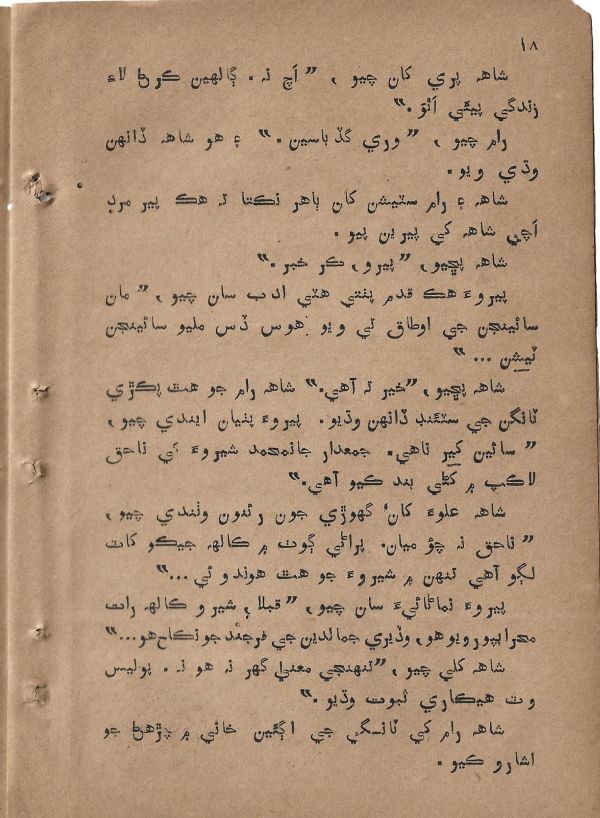 ١٨
شاهہ پري کان چيو ، ”اَچ نہ. ڳالهين ڪرڻ لاءِ
زندگي پيئي اَٿوَ.“
رام چيو ، ”وري گڏباسين.“ ۽ هو شاهہ ڏانهن
وڌي ويو.
شاهہ ۽ رام سٽيشن کان ٻاهر نڪتا تہ هڪ پير مرد
اَچي شاهہ کي پيرين پيو.
شاهہ پڇيو، ”پيرو، ڪر خبر.“
پيروءَ هڪ قدم پٺتي هٽي ادب سان چيو ، ”مان
سائينجن جي اوطاق تي ويو هوس ڏس مليو سائينجن
ٽيشن ... “
شاهہ پڇيو، ”خير تہ آهي.“ شاهہ رام جو هٿ پڪڙي
ٽانگن جي سٽئنڊ ڏانهن وڌيو. پيروءَ پٺيان ايندي چيو،
”سائين کير ناهي. جمعدار جانمحمد شيروءَ کي ناحق
لاڪپ ۾ کڻي بند ڪيو آهي.“
شاهہ علوءَ کان گهوڙي جون رئنون وٺندي چيو،
”ناحق نہ چؤ ميان. پراڻي ڳوٺ ۾ ڪالهہ جيڪو کاٽ
لڳو آهي تنهن ۾ شيروءَ جو هٿ هوندو ئي...“
پيروءَ نماڻائيءَ سان چيو، ”قبلا، شيرو ڪالهہ رات
محرابپور ويو هو، وڏيري جمالدين جي فرجند جو نڪاح هو...“
شاهہ کلي چيو، ”تنهنجي معنيٰ گهر نہ هو نہ. پوليس
وٽ هيڪاري ثبوت وڌيو.“
شاهہ رام کي ٽانگي جي اڳئين خاني ۾ چڙهڻ جو
اشارو ڪيو.